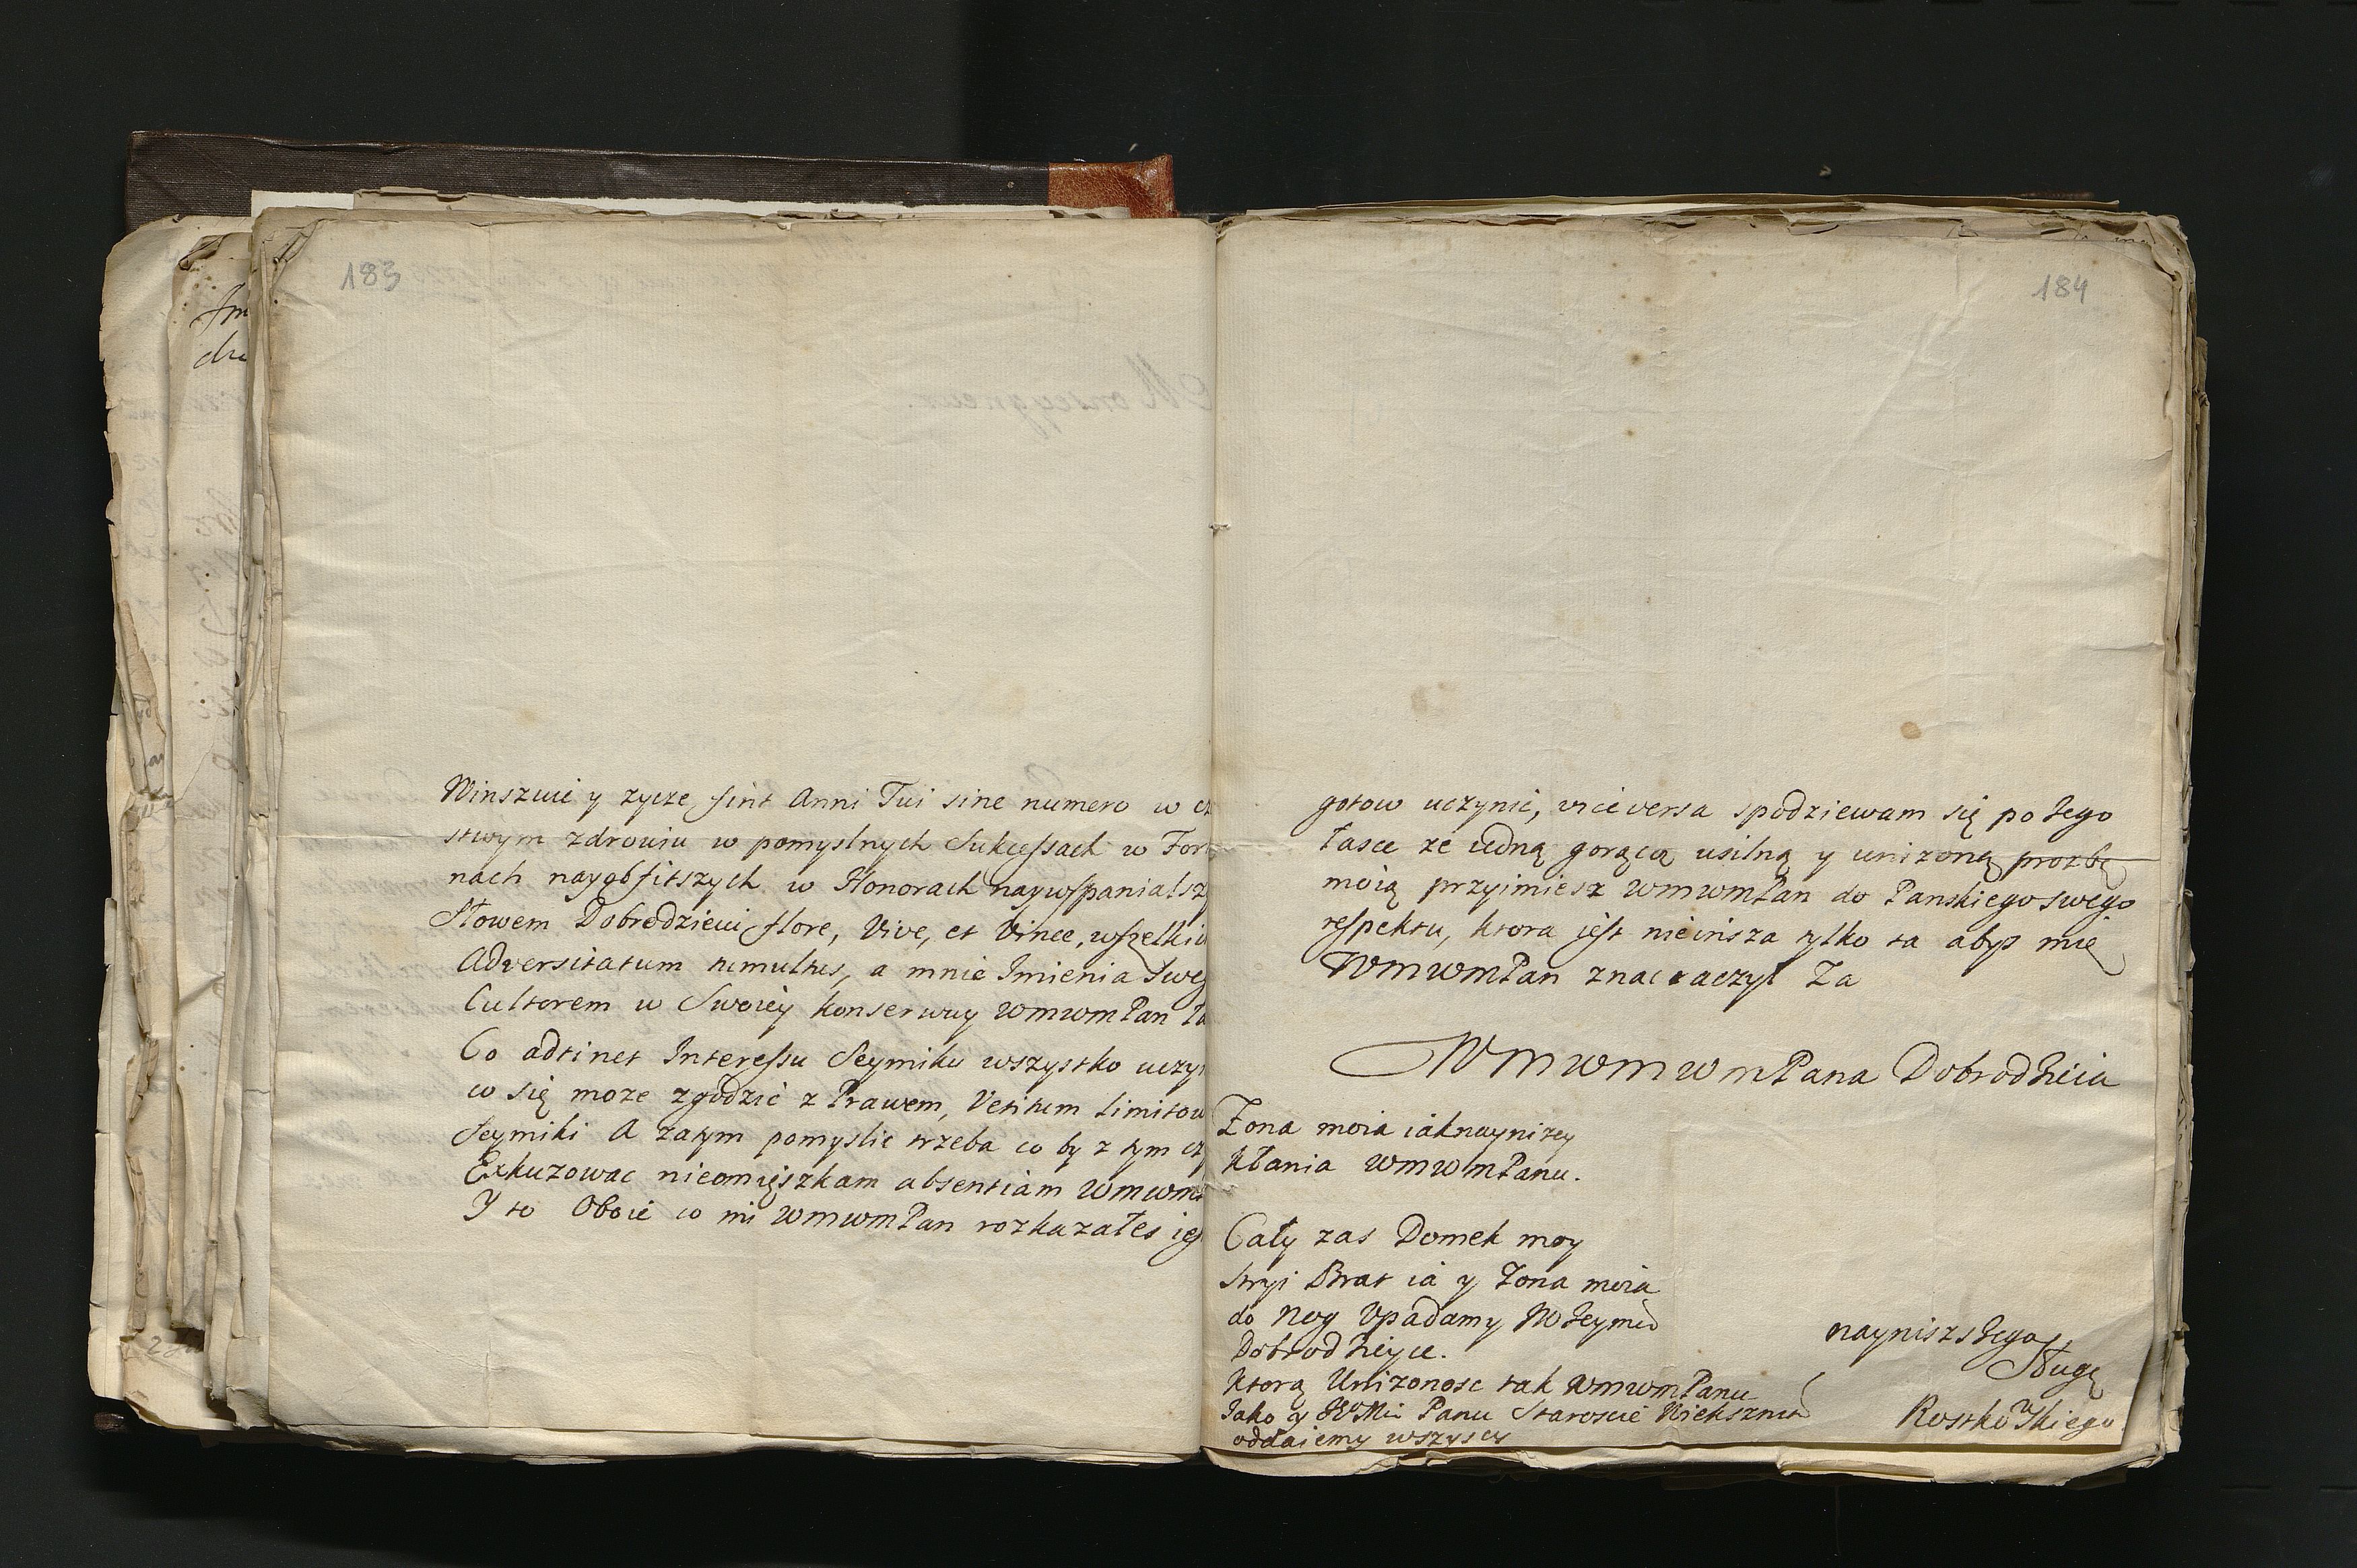 183
Winszuie y zycze, sint Anni Tui sine numero w
stwym zdrowiu w pomyslnych Sukcessach w For
nach nayobfitszych w Honorach naywspanialsz
Słowem Dobrodzieiu flore, Vive, et Vince, wszelkie
Adversitatum tumultus, a mnie Imienia Sweg
Cultorem w Swoiey konserwuy WmwmPan
Co adtinet Interessu Seymiku wszystko uczy
co się moze zgodzic z Prawem, Vetitum limitow
Seymiki A zatym pomyslic trzeba co by z tym
Exkuzowac nieomięszkam absentiam Wmwm
Y to Oboie co mi WmwmPan rozkazałes ies
184
gotow uczynic, vice versa spodziewam się po Jego
łasce ze iedną gorącą usilną y unizoną prozbę
moią przyimiesz WmwmPan do Panskiego swego
respektu, ktora jest nieinsza tylko ta abys mię
WmwmPan znac raczył Za
WmwmwmPana Dobrodzieia
Zona moia iaknaynizey
kłania WmwmPanu.
Cały zas Domek moy
Stryi Brat ia y Zona moia
do Nog Vpadamy
Dobrodzieyce.
Ktorą Unizonosc tak WmwmPanu
Jako y Panu Staroscie
oddaiemy wszyscy
nayniszszego
Sługę
Rostkowskiego